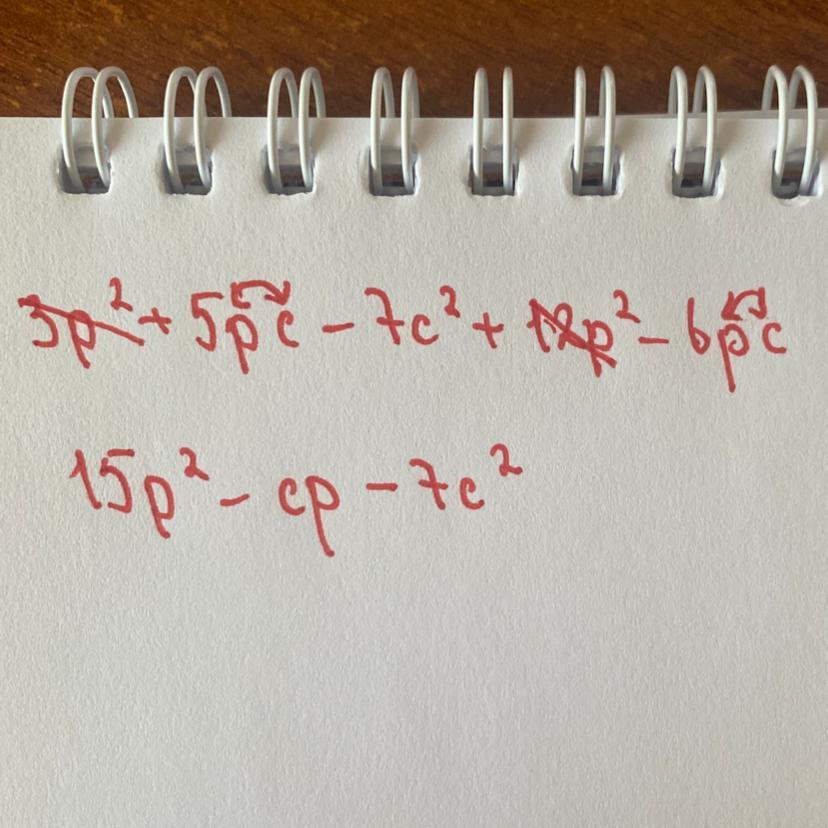 3p² + 5pc - 7c² + 12p² - 6pc
15p² - cp - 7c²